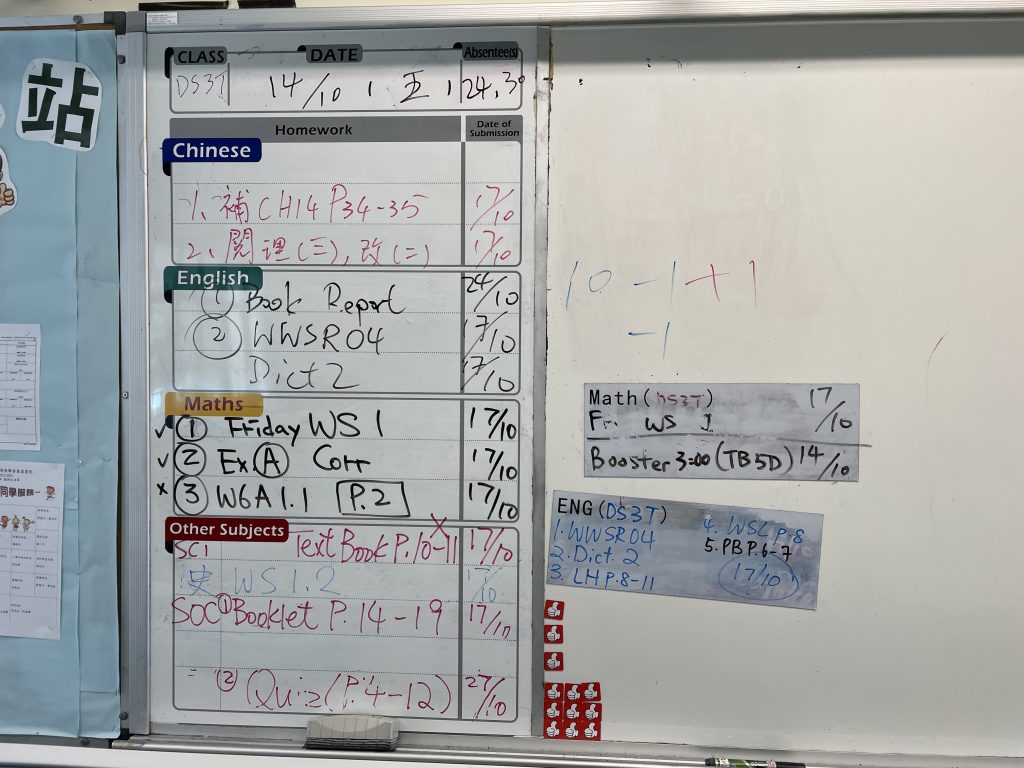 站
CLASS DATE Absentee(s)
DS3T 14/10 , 五 , 24,30
Homework Date of Submission
Chinese
1、補 CH14 P34-35 17/10
2、閱理(三),改(二) 17/10
English
① Book Report 24/10
② WWSR04 17/10
Dict 2 17/10
Maths
✓ ① Friday WS 1 17/10
✓ ② Ex Ⓐ Corr 17/10
x ③ W6A1.1 P.2 17/10
Other Subjects
SCI Text Book P.10-11 17/10
史 WS 1.2 17/10
SOC ① Booklet P.14-19 17/10
② Quiz (P.4-12) 27/10
10 -1 +1
-1
Math (DS3T) 17/10
Fri WS 1
Booster 3:00 (TB5D) 14/10
ENG (DS3T)
1. WWSR04
2. Dict. 2
3. LH P.8-11
4. WSL P.8
5. PB P.6-7
17/10
同學服務